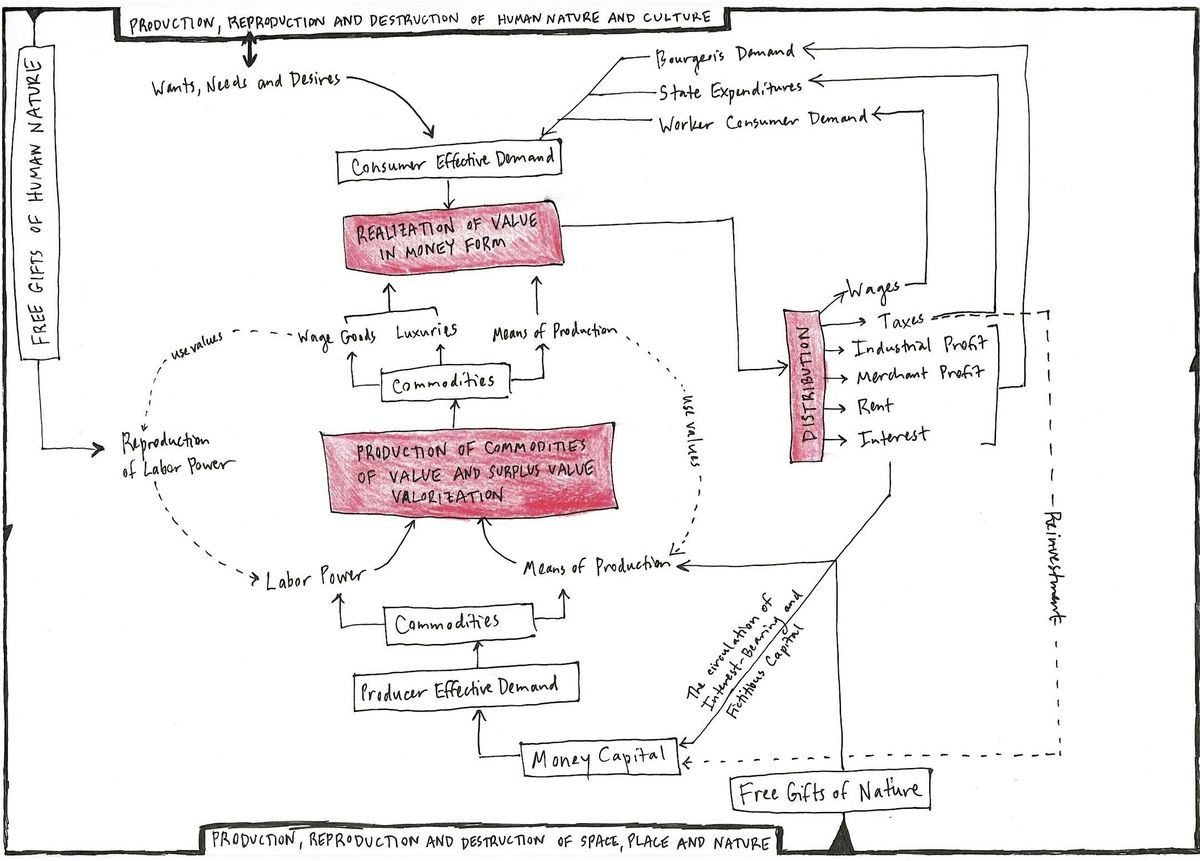 PRODUCTION, REPRODUCTION AND DESTRUCTION OF HUMAN NATURE AND CULTURE
FREE GIFTS OF HUMAN NATURE
Wants, Needs and Desires
Bourgeois Demand
State Expenditures
Worker Consumer Demand
Consumer Effective Demand
REALIZATION OF VALUE
IN MONEY FORM
Wages
Taxes
Industrial Profit
Merchant Profit
Rent
Interest
DISTRIBUTION
use values
Wage Goods
Luxuries
Means of Production
Commodities
use values
Reproduction
of Labor Power
PRODUCTION OF COMMODITIES
OF VALUE AND SURPLUS VALUE
VALORIZATION
Labor Power
Means of Production
Reinvestment
Commodities
Producer Effective Demand
The circulation of
Interest-Bearing and
Fictitibus Capital
Money Capital
Free Gifts of Nature
PRODUCTION, REPRODUCTION AND DESTRUCTION OF SPACE, PLACE AND NATURE